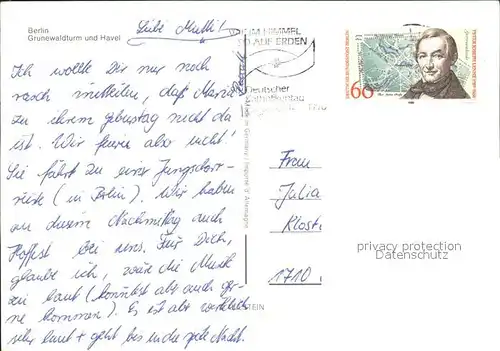 Berlin
Grunewaldturm und Havel
Liebe Mutti!
Ich wollte Dir nur noch
rasch mitteilen, daß Maria
zu ihrem Geburtstag nicht da
ist. Wir feiern also nicht!
Sie fährt zu einer
(in Berlin). Wir haben
an diesem Nachmittag auch
Hoffest bei uns. Für Dich,
glaube ich, wäre die Musik
zu laut (könntest aber auch ger-
ne kommen). Es ist aber wirklich
sehr laut + geht bis in die späte Nacht.
IM HIMMEL
AUF ERDEN
Deutscher
60
Frau
Julia
Klost
1710
privacy protection
Datenschutz